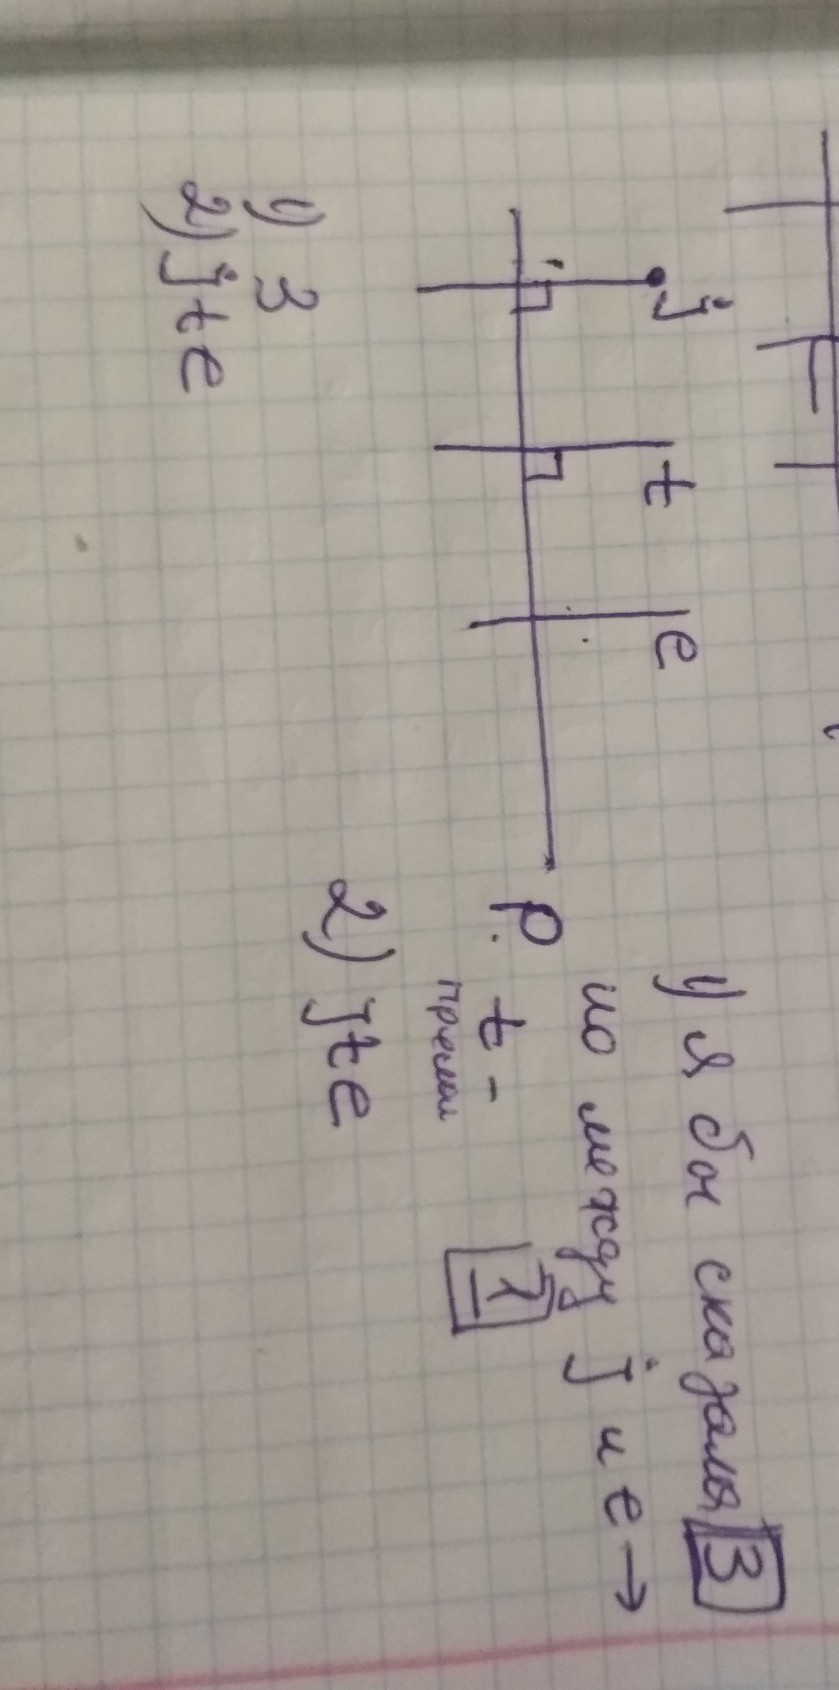 j t e
p
1) 3
2) jte
1) я бы сказала 3
но между j и e →
t -
прямая
1
2) jte